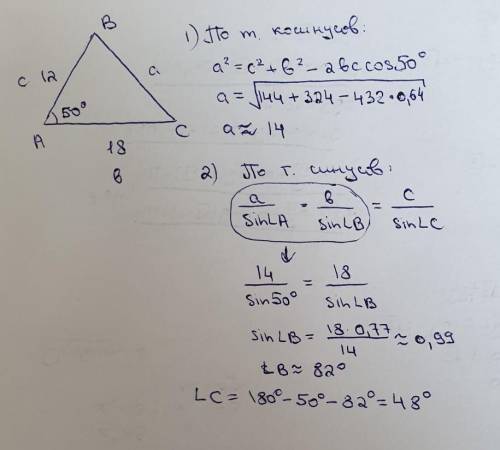 B
c 12
a
50°
A
C
18
в
1) По т. косинусов:
a² = c² + в² - 2вc cos50°
a = √144 + 324 - 432 • 0,64
a ≈ 14
2) По т. синусов:
a/sin∠A = в/sin∠B = c/sin∠C
14/sin50° = 18/sin∠B
sin∠B = 18·0,77/14 ≈ 0,99
∠B ≈ 82°
∠C = 180° - 50° - 82° = 48°